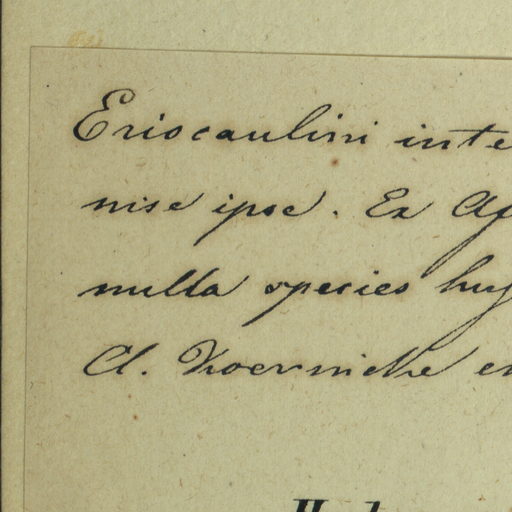 Eriocaulini inte
nise ipse. Ex Af
nulla species huj
Cl. Koernicke en